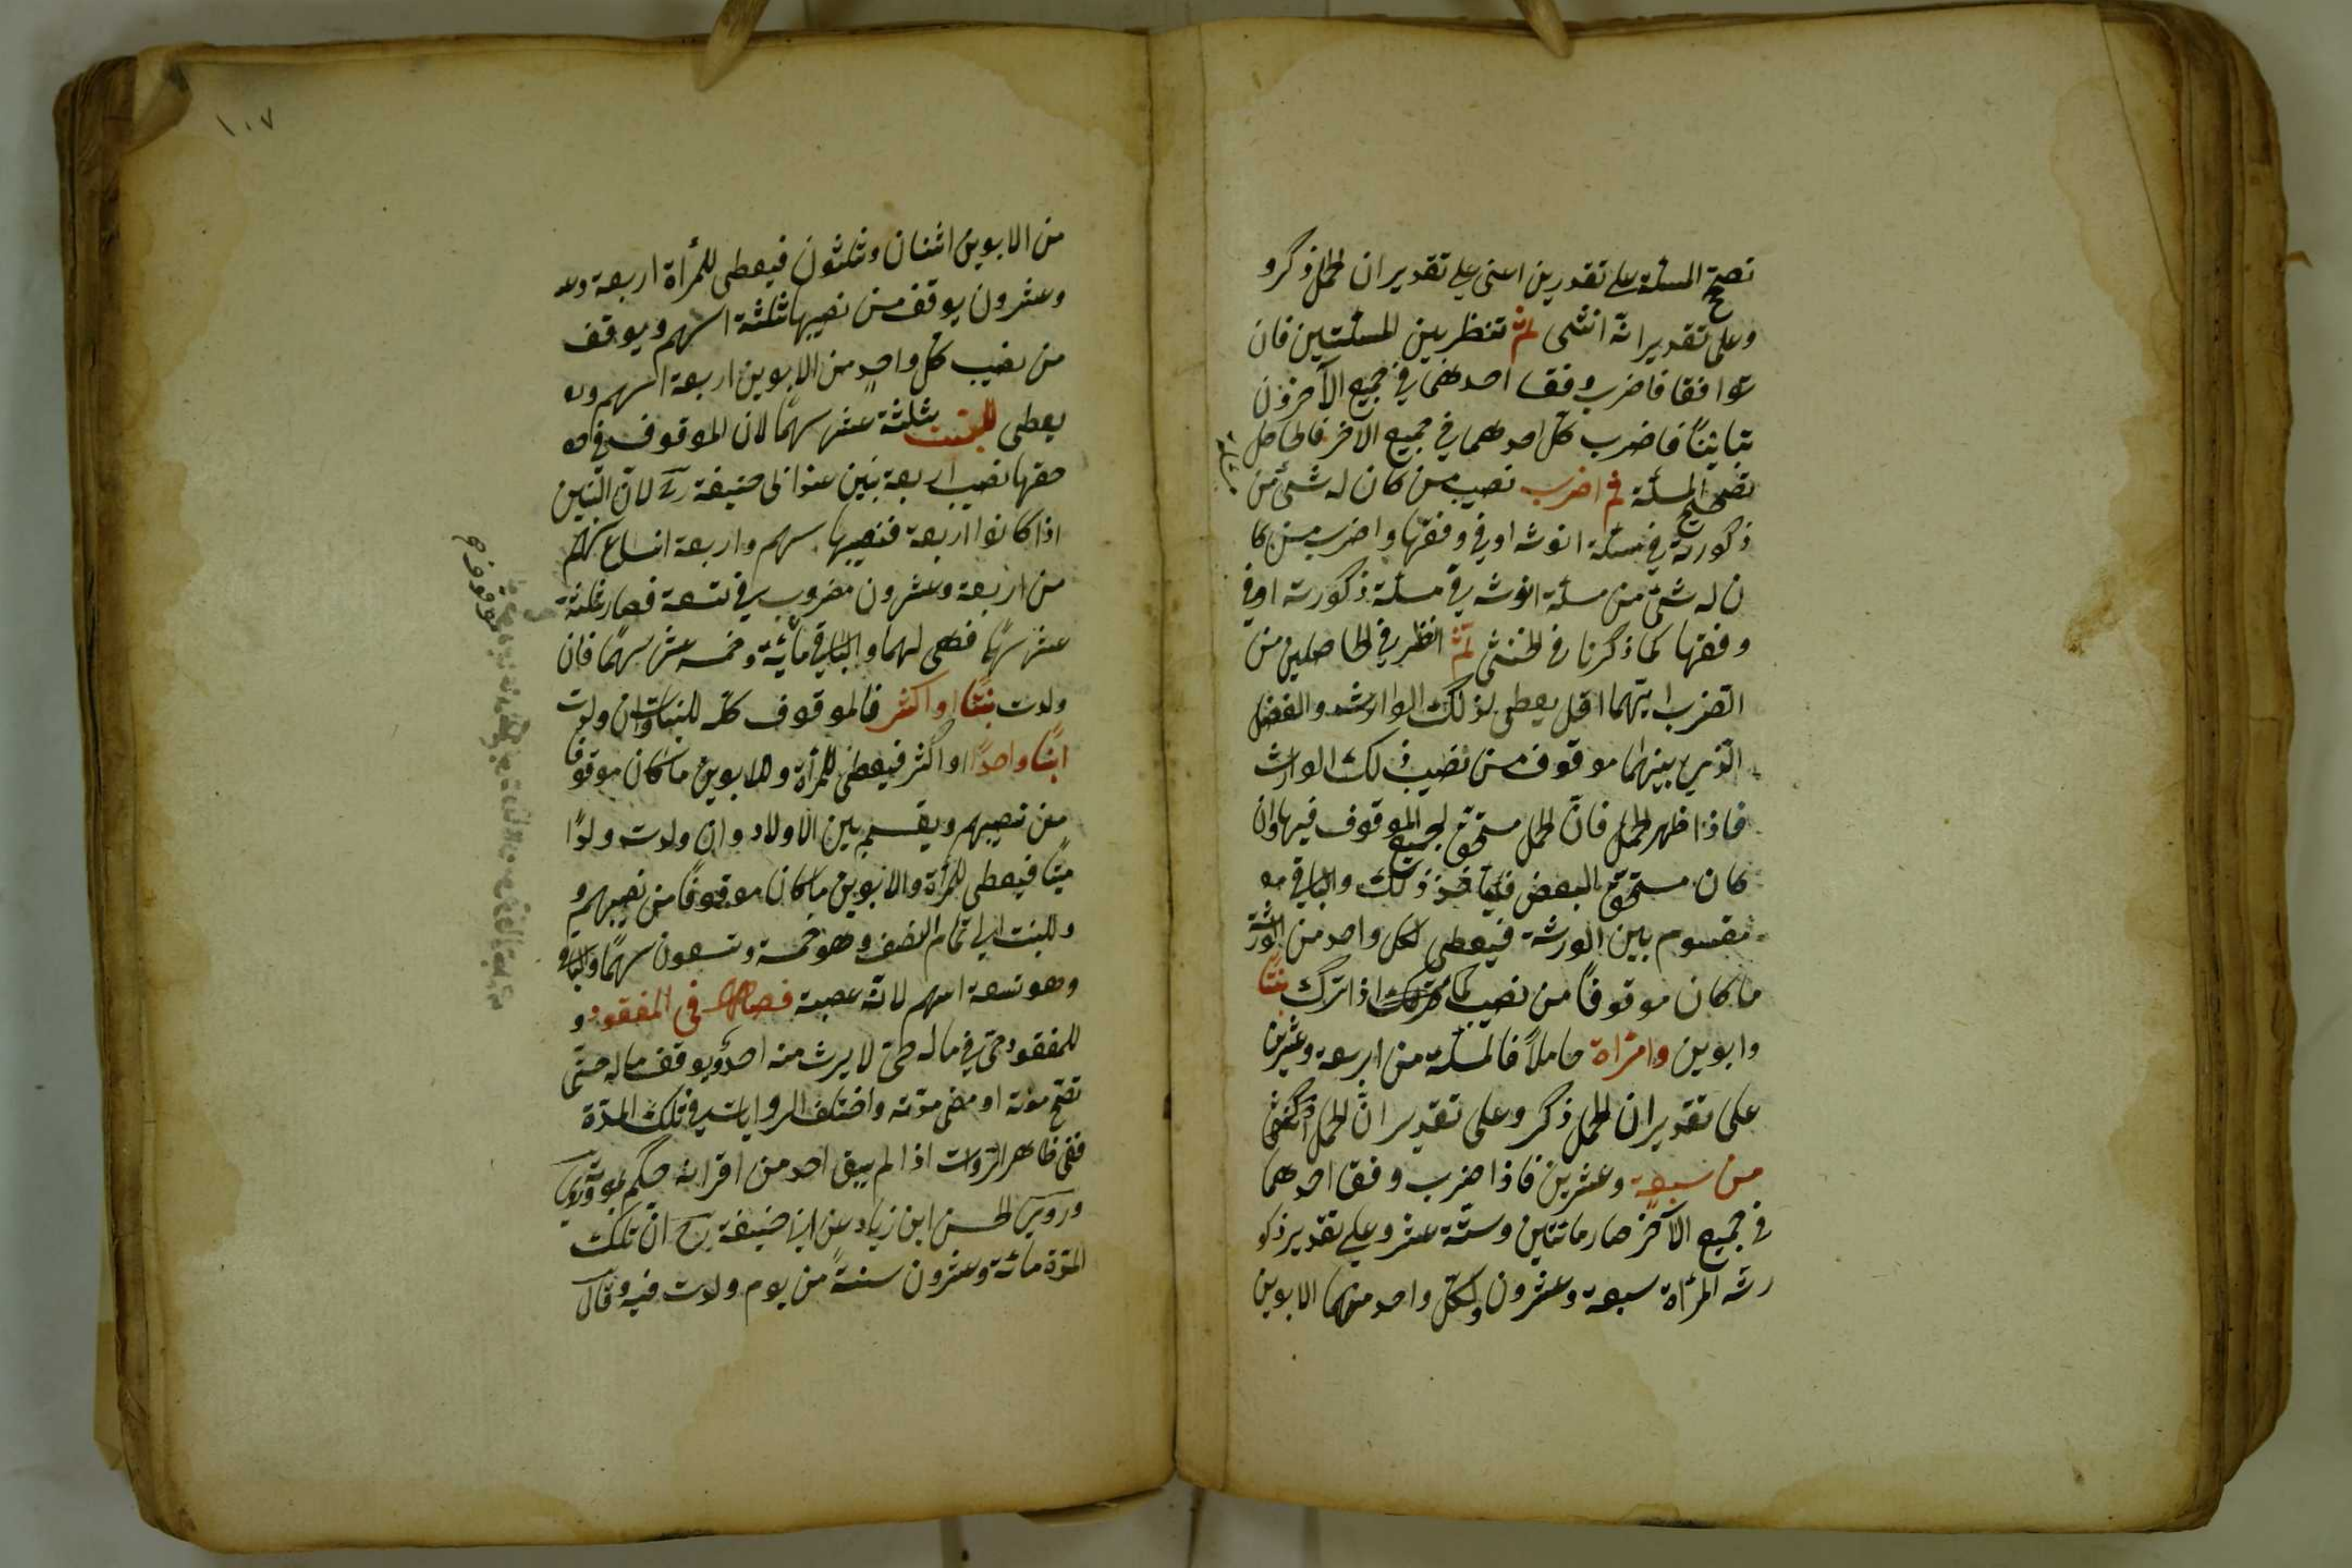 تصح المسئلة على تقدرين اعنى على تقدير ان الحمل ذكر و
وعلى تقدير انه انثى ثم تنظر بين المسئلتين فان
توافقا فاضرب وفق احدهما في جميع الآخر وان
تباينتا فاضرب كل احدهما في جميع الآخر فالحاصل
تصحيح المسئلة ثم اضرب نصيب من كان له شئ من
ذكورته في مسئلة انوثه او في وفقها واضرب من كا
ن له شئ من مسئلة انوثه في مسئلة ذكورته او في
وفقها كما ذكرنا في الخنثى ثم انظر في الحاصلين من
الضرب ايتهما اقل يعطى لذلك الوارث والفضل
الذي بينهما موقوف من نصيب ذلك الوارث
فاذا ظهر الحمل فان الحمل مستحق لجميع الموقوف فيها وان
كان مستحق البعض فيأخذ ذلك والباقي
مقسوم بين الورثة فيعطى لكل واحد من الورثة
ما كان موقوفًا من نصيب كما اذا ترك بنتًا
وابوين وامرأة حاملًا فالمسئلة من اربعة وعشرين
على تقدير ان الحمل ذكر وعلى تقدير ان الحمل انثى
من سبعة وعشرين فاذا ضرب وفق احدهما
في جميع الآخر صار مائتين وستة عشر وعلى تقدير ذكو
رته المرأة سبعة وعشرون ولكل واحد منهما الابوين
١٠٧
من الابوين اثنان وثلثون فيعطى للمرأة اربعة و
وعشرون يوقف من نصيبها ثلثة اسهم ويوقف
من نصيب كل واحد من الابوين اربعة اسهم و
يعطى للبنت ثلثة عشر سهمًا لان الموقوف في
حقها نصيب اربعة بنين عند ابي حنيفة رح لان البنين
اذا كانوا اربعة فنصيبها سهم واربعة اتساع سهم
من اربعة وعشرون مضروب في تسعة فصار ثلثة
عشر سهمًا فهى لهما والباقي مائة وخمسه عشر سهمًا فان
ولدت بنتًا او اكثر فالموقوف كله للبنات وان ولدت
ابنًا واحدًا او اكثر فيعطى للمرأة والابوين ما كان موقوفا
من نصيبهم ويقسم بين الاولاد وان ولدت ولدًا
ميتًا فيعطى للمرأة والابوين ما كان موقوفًا من نصيبهم و
وللبنت الى تمام النصف وهو خمسة وتسعون سهمًا والباقي
وهو تسعة اسهم لانه عصبة فصل في المفقود و
المفقود حي في ماله حتى لا يرث منه احد ويوقف ماله حتى
تصح موته او مضى مدته واختلف الروايات في تلك المدة
ففي ظاهر الروات اذا لم يبق احد من اقرانه حكم بموته وروى
وروى الحسن ابن زياد عن ابي حنيفة رح ان تلك
المدة مائة وعشرون سنةً من يوم ولدت فيه وقال